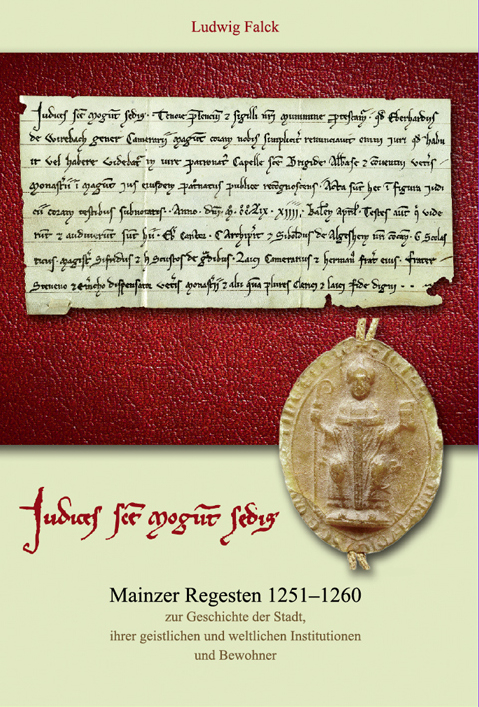 Ludwig Falck
Judices sce mogunt sedis. Tenore presenciu z sigilli nri munimine protestam. qd Eberhardus
de gener Camerarii magunt coram nobis simpliciter renunciavit omni juri qd habu
it vel habere videbat in jure patronat Capelle sce Brigide Abbisse z coventui veteris
monasterii i magunt jus eiusdem patronatus publice recognoscens. Acta sut hec i figura judi
cii coram testibus subnotatis. Anno. dni. m. cc. Lix. xiiii. kalen april. Testes aut q vide
rut z audiverut sut hii. Cantor. C Archiprbr z Sibodus de Algesheym G Scolas
ticus. magistr Sifridus z h Scustos de gdibus. Laici Camerarius z herman frat eius. frater
veteris monasterii z alii qua plures Clerici z laici fide digni
Judices sce mogunt sedis
Mainzer Regesten 1251–1260
zur Geschichte der Stadt,
ihrer geistlichen und weltlichen Institutionen
und Bewohner